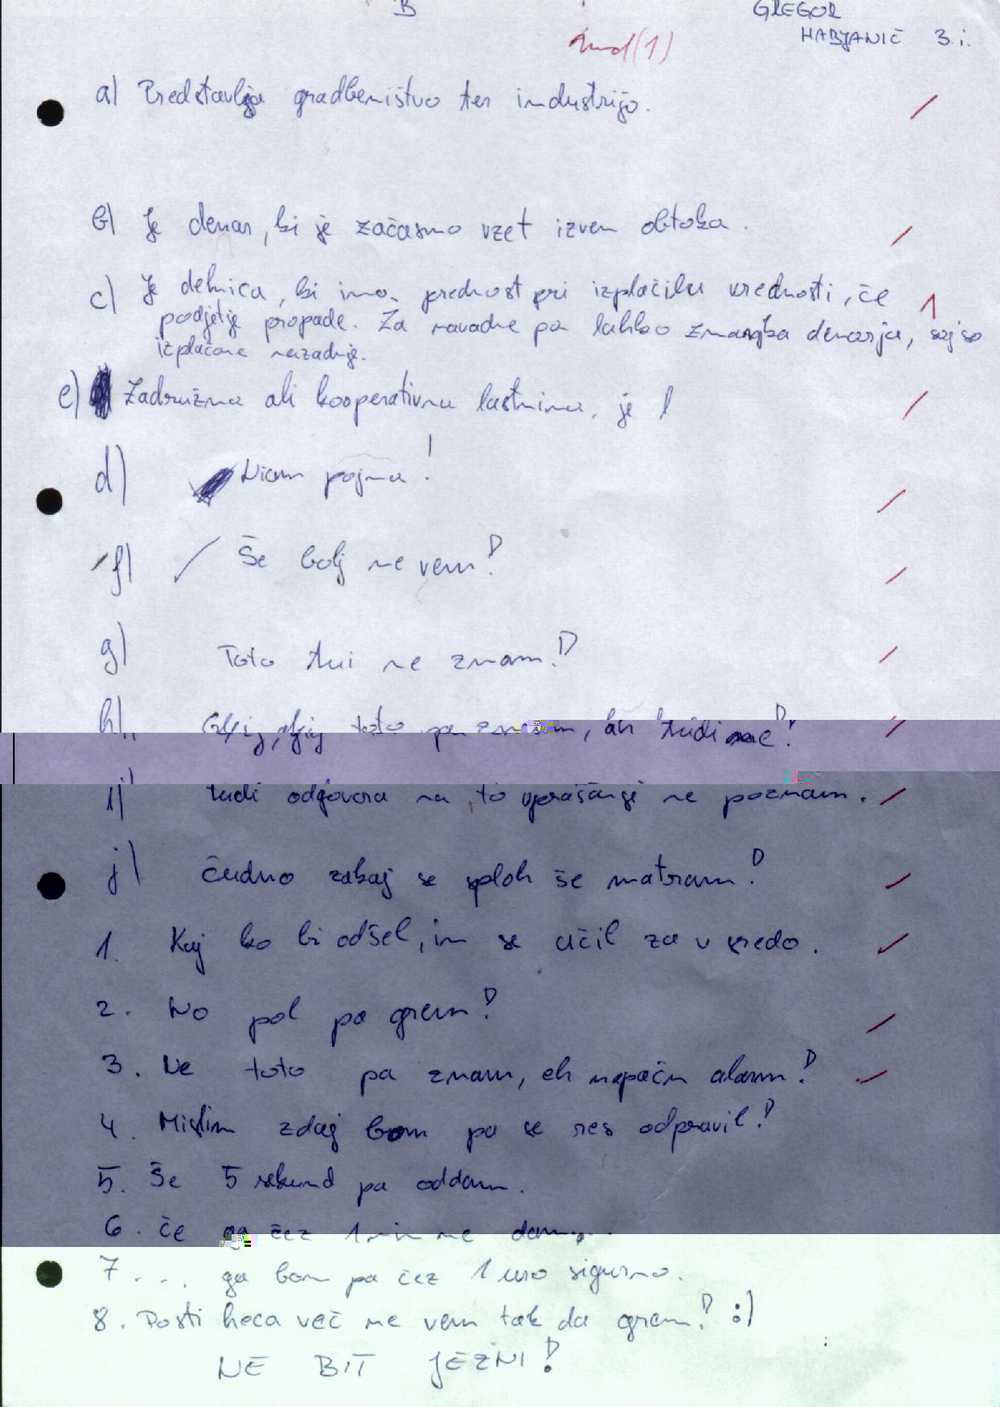 B
GREGOR
HABJANIČ 3.i.
nzd(1)
a) Predstavlja gradbeništvo ter industrijo.
b) Je denar, ki je začasno vzet izven obtoka.
c) Je delnica, ki ima prednost pri izplačilu vrednosti, če
podjetje propade. Za navadne pa lahko zmanjka denarja, saj so
izplačane nazadnje.
1
e) Zadružna ali kooperativna lastnina, je l
d) Nimam pojma!
f) Še bolj ne vem!
g) Toto tui ne znam!
h) Glej, glej toto pa znam, ah tudi ne!
i) tudi odgovora na to vprašanje ne poznam.
j) Čudno zakaj se sploh še matram!
1. Kaj ko bi odšel, in se učil za v sredo.
2. No pol pa grem!
3. Ne toto pa znam, eh napačn alarm!
4. Mislim zdaj bom pa se res odpravil!
5. Še 5 sekund pa oddam.
6. če ga čez 1 min ne dam...
7. ... ga bom pa čez 1 uro sigurno.
8. Dosti heca več ne vem tak da grem! :)
NE BIT JEZNI!